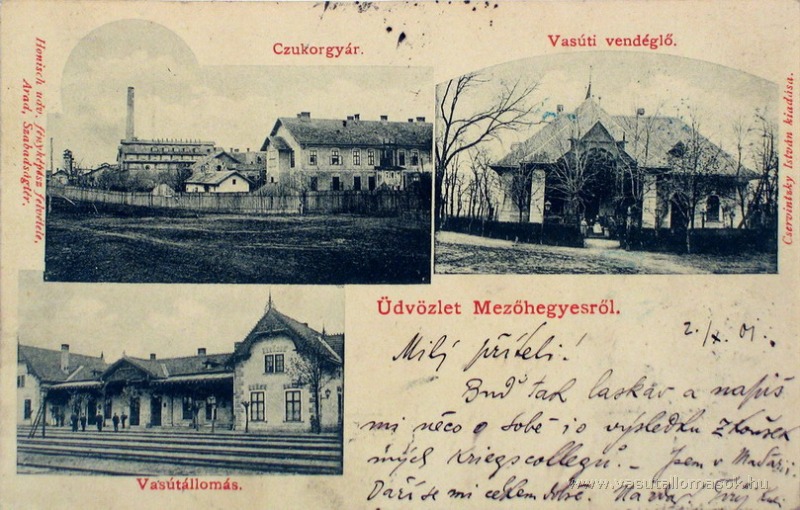 Czukorgyár.
Vasúti vendéglő.
Honisch udv. fényképész felvétele,
Arad, Szabadságtér.
Cservintzky István kiadása.
Üdvözlet Mezőhegyesről.
2./X. 01.
Milý příteli!
Buď tak laskav a napiš
mi něco o sobě i o výsledku zkoušek
mých Kriegscollegů. – Jsem v
Daří se mi celkem dobře. Na zdar!
Vasútállomás.
www.vasutallomasok.hu